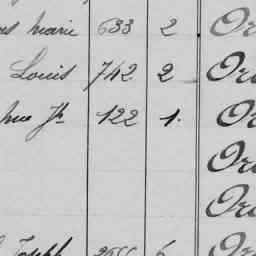 marie 633 2 Or
Louis 742 2 Or
Jh 122 1. Or
Or
Or
Joseph 6 Or